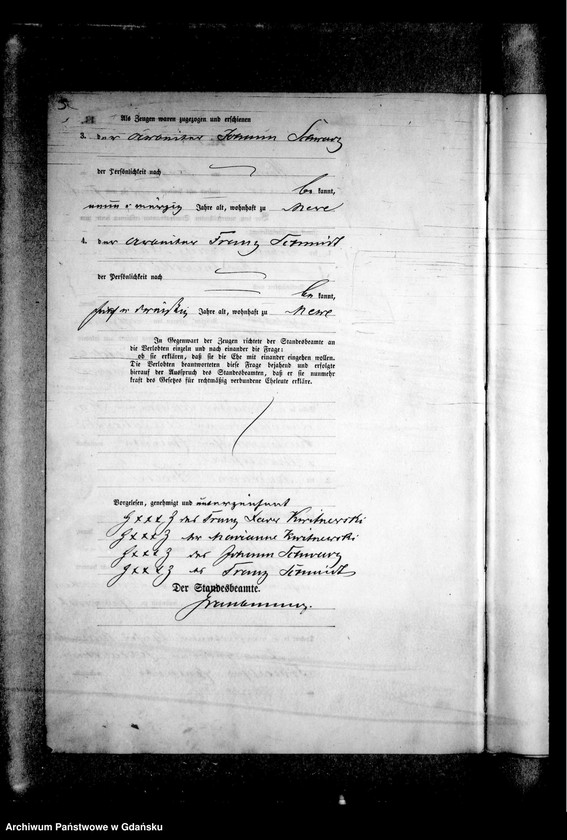 Als Zeugen waren zugezogen und erschienen
3. der Arbeiter Johann Schwarz
der Persönlichkeit nach
be kannt,
Jahre alt, wohnhaft zu Mewe
4. der Arbeiter Franz Schmidt
der Persönlichkeit nach
be kannt,
fünf u dreißig Jahre alt, wohnhaft zu Mewe
In Gegenwart der Zeugen richtete der Standesbeamte an
die Verlobten einzeln und nach einander die Frage:
ob sie erklären, daß sie die Ehe mit einander eingehen wollen.
Die Verlobten beantworteten diese Frage bejahend und erfolgte
hierauf der Ausspruch des Standesbeamten, daß er sie nunmehr
kraft des Gesetzes für rechtmäßig verbundene Eheleute erkläre.
Vorgelesen, genehmigt und unterzeichnet
HxxxZ des Franz Kwitnewski
HxxxZ der Marianne Kwitnewski
HxxxZ des Johann Schwarz
HxxxZ Franz Schmidt
Der Standesbeamte.
Archiwum Państwowe w Gdańsku